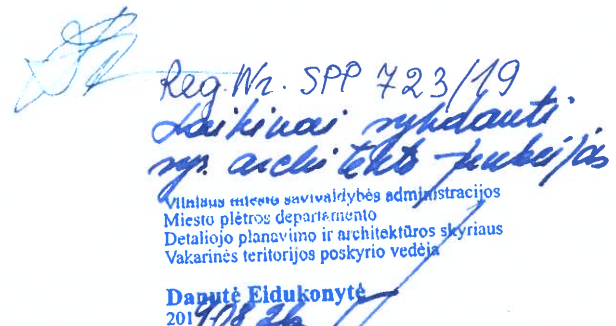 Reg. Nr. SPP 723/19
Laikinai vykdanti
vyr. architekto funkcijas
Vilniaus miesto savivaldybės administracijos
Miesto plėtros departamento
Detaliojo planavimo ir architektūros skyriaus
Vakarinės teritorijos poskyrio vedėja
Danutė Eidukonytė
201